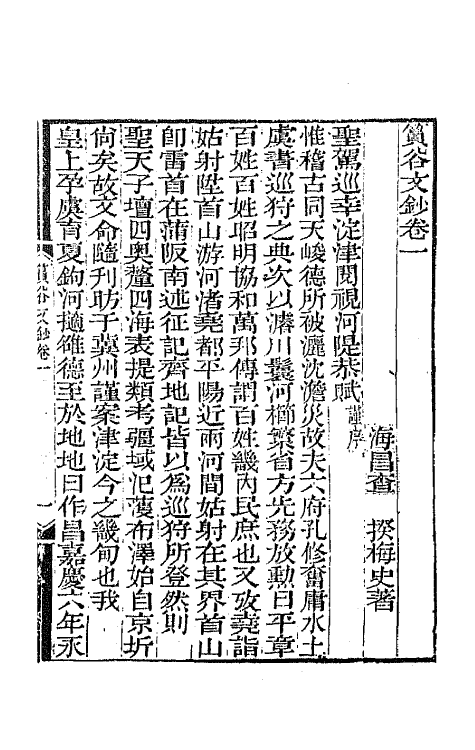 篔谷文鈔卷一
海昌查 揆梅史著
聖駕巡幸淀津閱視河隄恭賦謹序
惟稽古同天峻德所被灑沈澹災故夫六府孔修奮庸水土
虞書巡狩之典次以濬川鬟河櫛繁省方先務放勳曰平章
百姓百姓昭明協和萬邦傳謂百姓畿內民庶也又攷堯詣
姑射陞首山游河渚堯都平陽近兩河間姑射在其界首山
卽雷首在蒲阪南述征記齊地記皆以爲巡狩所登然則
聖天子壇四奥釐四海表提類考疆域汜濩布澤始自京圻
倘矣故文命隨刊昉于冀州謹案津淀今之畿甸也我
皇上孕虞育夏鉤河擿雒德至於地地曰作昌嘉慶六年永
篔谷文鈔卷一
一